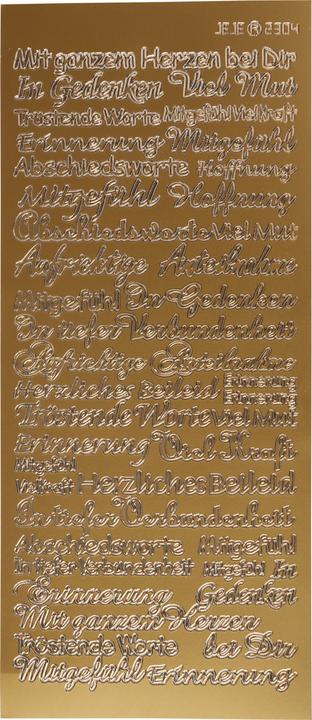 JEJE ® 2304
Mit ganzem Herzen bei Dir
In Gedenken Viel Mut
Tröstende Worte Mitgefühl Viel Kraft
Erinnerung Mitgefühl
Abschiedsworte Hoffnung
Mitgefühl Hoffnung
Abschiedsworte Viel Mut
Aufrichtige Anteilnahme
Mitgefühl In Gedenken
In tiefer Verbundenheit
Aufrichtige Anteilnahme
Herzliches Beileid Erinnerung
Erinnerung
Tröstende Worte Viel Mut
Erinnerung Viel Kraft
Mitgefühl
Vielkraft Herzliches Beileid
In tiefer Verbundenheit
Abschiedsworte Mitgefühl
In tiefer Verbundenheit Mitgefühl In
Erinnerung Gedenken
Mit ganzem Herzen
Tröstende Worte bei Dir
Mitgefühl Erinnerung